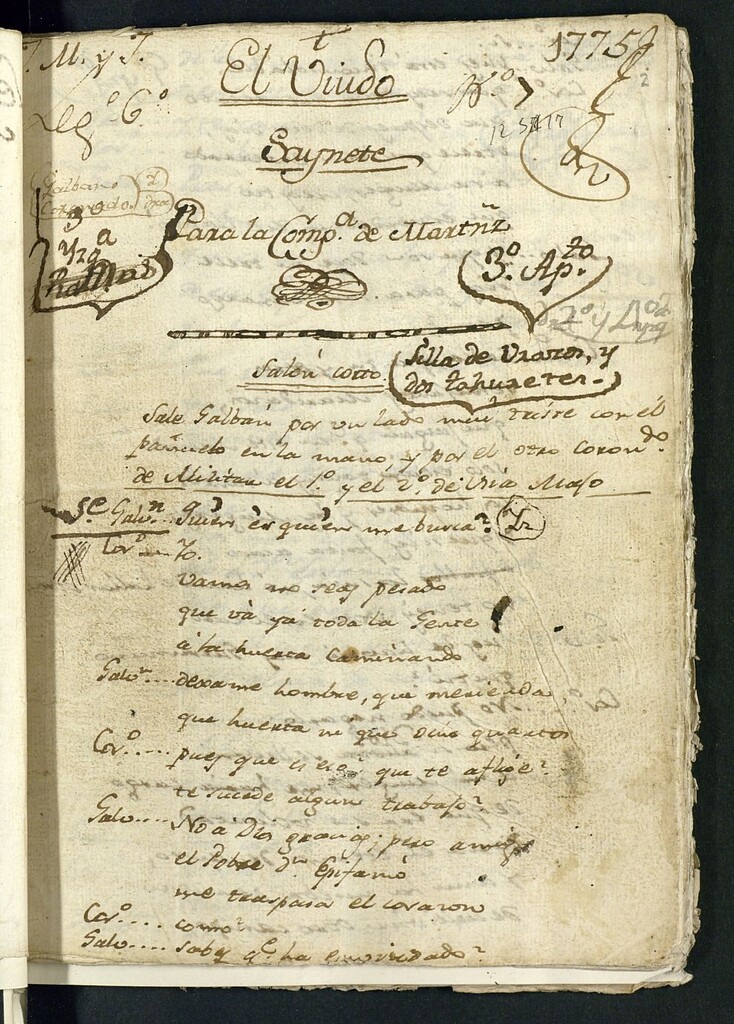 J. M. y J.
1775
El Viudo
Leg.º 6.º
Saynete
12 5 17
Galban
Coronado
Para la Comp.ª de Martnz
3.º Ap.to
2.º y
Salon corto
Silla de Vrazos, y
dos tahuretes.
Sale Galban por un lado mui triste con el
pañuelo en la mano, y por el otro Coron.do
de Militar el 1.º y el 2.º de Vsia Majo
Galv.n Quien es quien me busca?
Cor.º Yo.
Vamos no seas pesado
que và yá toda la Gente
á la huerta Caminando
Galv.n dexame hombre, que merienda,
que huerta ni que ocho quartos
Cor.º pues que es eso? que te aflige?
te sucede algun trabajo?
Galv. No á Dios gracias; pero amigo
el Pobre d.n Epifanio
me traspasa el corazon
Cor.º como?
Galv. sabes q.e ha enviudado?